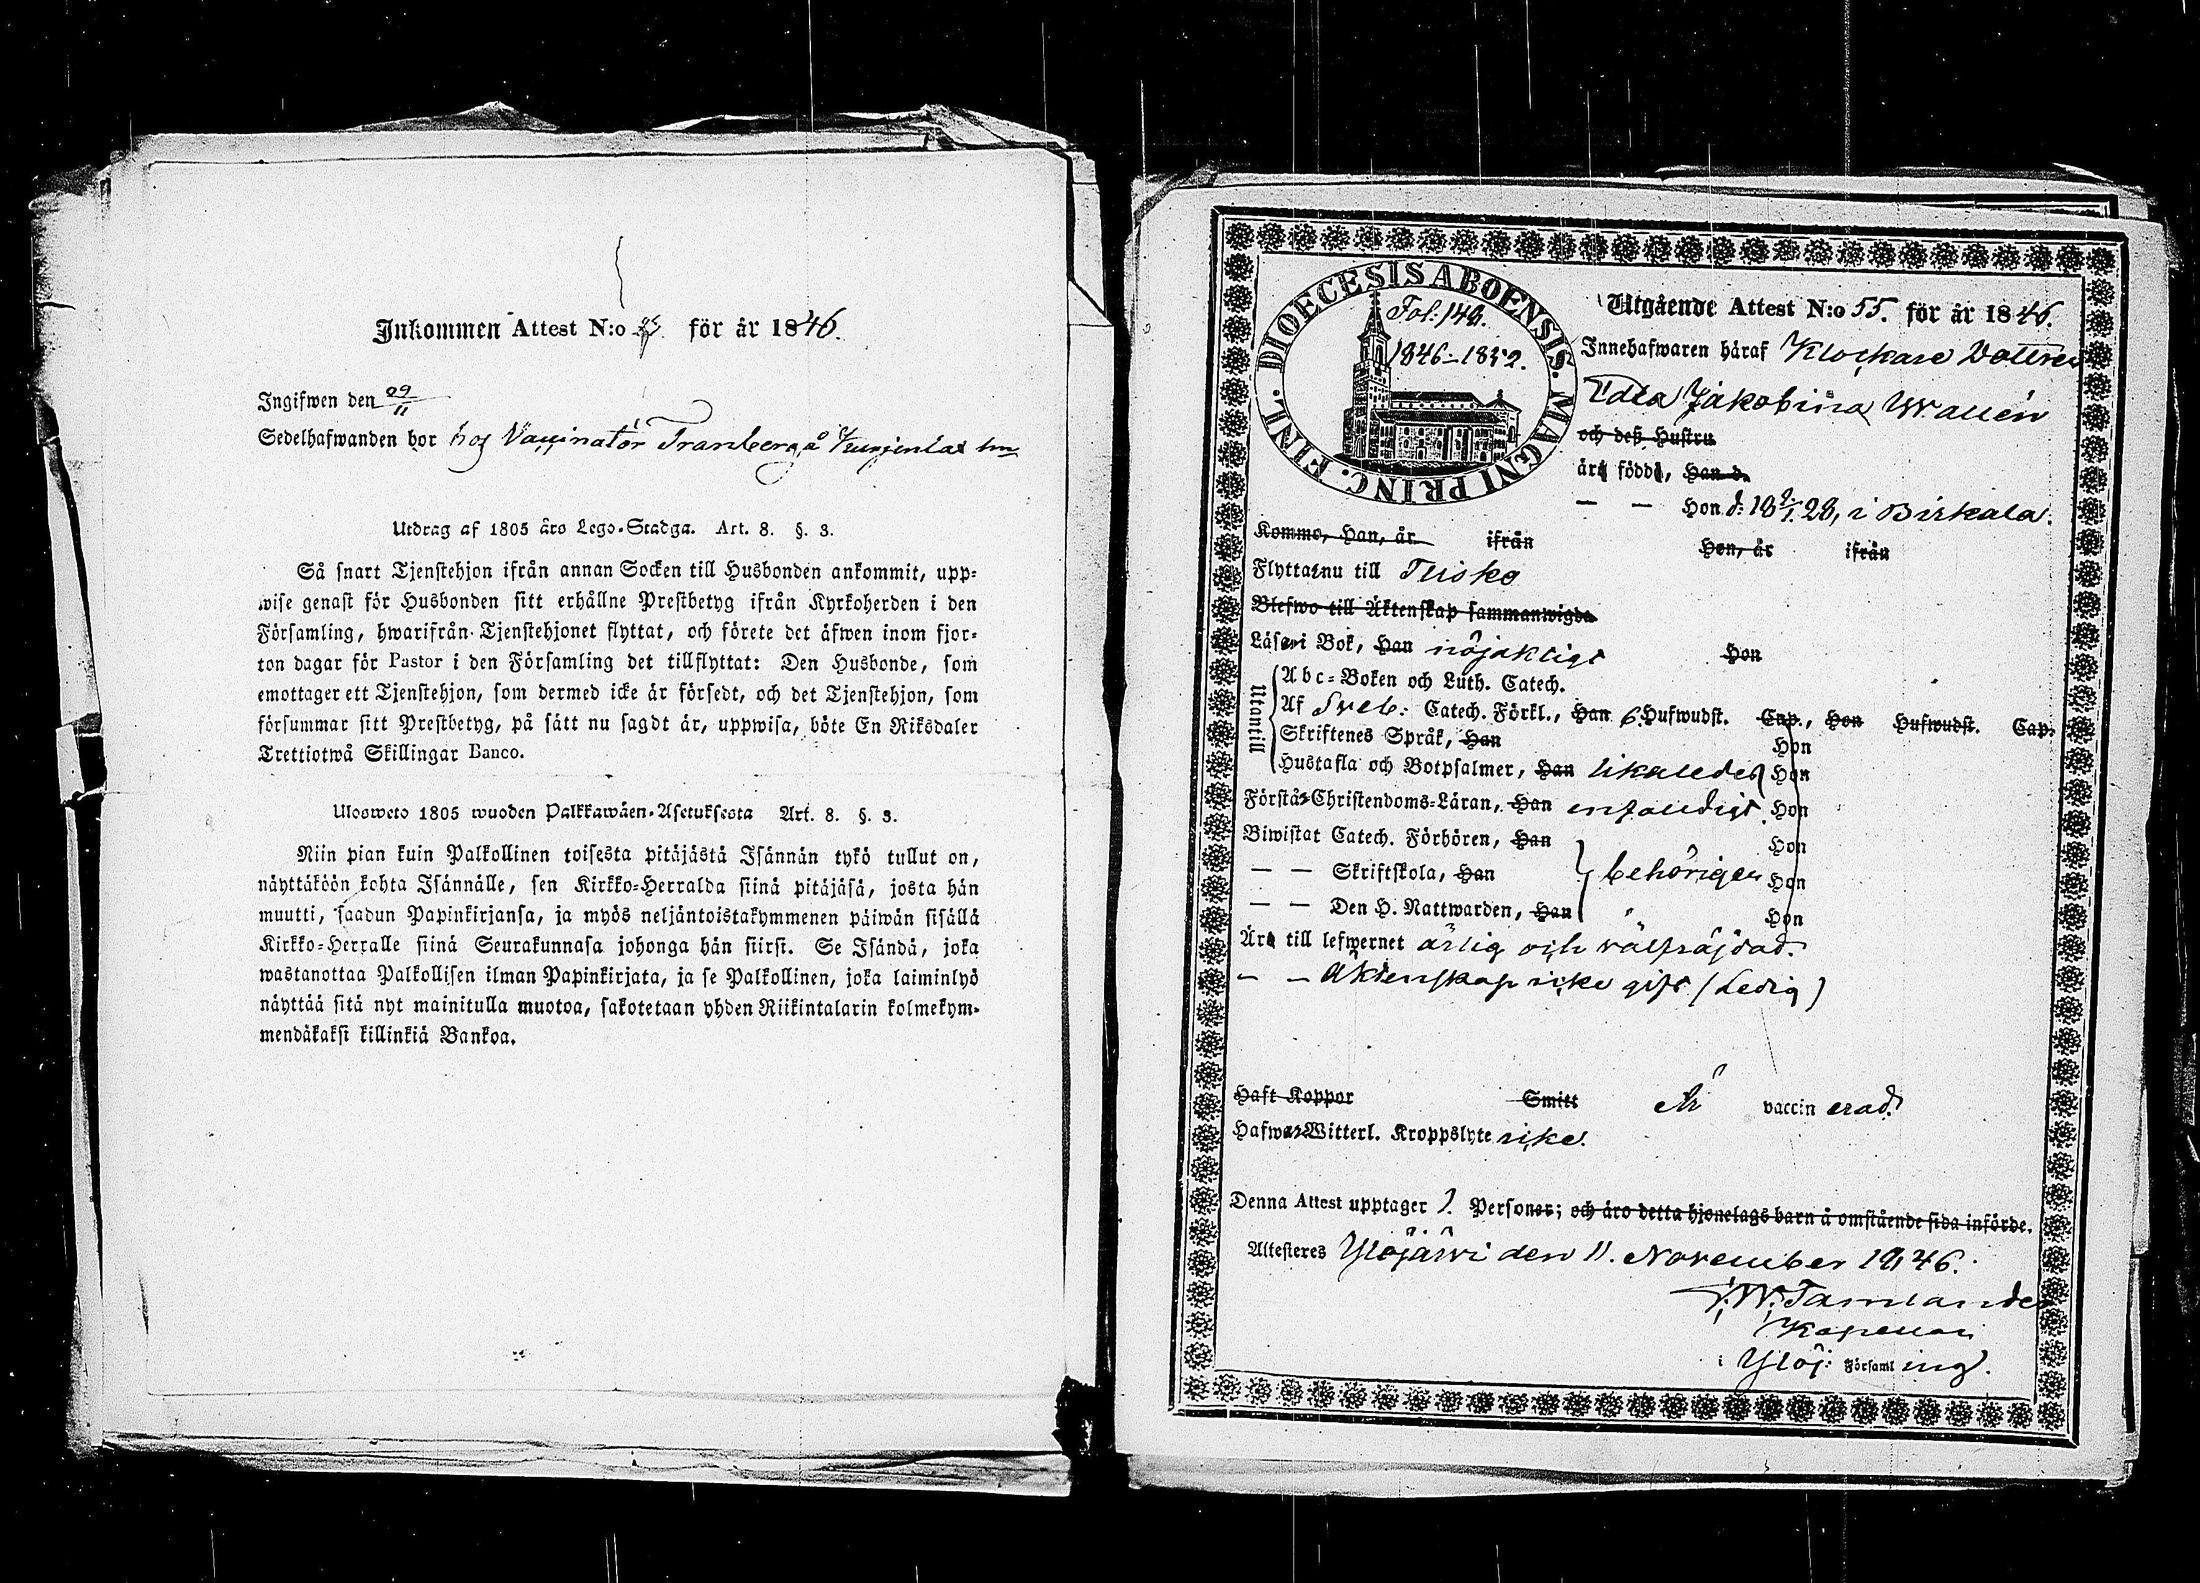 Inkommen Attest N:o för år 1846.
Ingifwen den 29/11
Sedelhafwanden bor hos Vaccinatör Tranberg å
Utdrag af 1805 års Lego-Stadga. Art. 8. §. 3.
Så snart Tjenstehjon ifrån annan Socken till Husbonden ankommit, upp-
wise genast för Husbonden sitt erhållne Prestbetyg ifrån Kyrkoherden i den
Församling, hwarifrån Tjenstehjonet flyttat, och förete det äfwen inom fjor-
ton dagar för Pastor i den Församling det tillflyttat: Den Husbonde, som
emottager ett Tjenstehjon, som dermed icke är försedt, och det Tjenstehjon, som
försummar sitt Prestbetyg, på sätt nu sagdt är, uppwisa, böte En Riksdaler
Trettiotwå Skillingar Banco.
Ulosweto 1805 wuoden Palkkawäen-Asetuksesta Art. 8. §. 3.
Niin pian kuin Palkollinen toisesta pitäjästä Isännän tykö tullut on,
näyttäköön kohta Isännälle, sen Kirkko-Herralda siinä pitäjäsä, josta hän
muutti, saadun Papinkirjansa, ja myös neljäntoistakymmenen päiwän sisällä
Kirkko-Herralle siinä Seurakunnasa johonga hän siirsi. Se Isändä, joka
wastanottaa Palkollisen ilman Papinkirjata, ja se Palkollinen, joka laiminlyö
näyttää sitä nyt mainitulla muotoa, sakotetaan yhden Riikintalarin kolmekym-
mendäkaksi killinkiä Bankoa.
DIOECESIS ABOENSIS. MAGNI PRINC. FINL.
Fol: 149.
1846-1852.
Utgående Attest N:o 55. för år 1846.
Innehafwaren häraf Klockare Dottren
Edla Jakobina Wallén
och deß Hustru
äro födde, Han d.
— — Hon d: 18 2/1. 28, i Birkala.
Kommo, Han, år ifrån Hon, år ifrån
Flyttar nu till Tusko
Blefwo till Äktenskap sammanwigda
Läser i Bok, Han nöjaktigt Hon
Utantill
Abc-Boken och Luth. Catech.
Af Sveb: Catech. Förkl., Han 6 Hufwudst. Cap., Hon Hufwudst. Cap.
Skriftenes Språk, Han Hon
Hustafla och Botpsalmer, Han likaledes Hon
Förstår Christendoms-Läran, Han enfaldigt. Hon
Biwistat Catech. Förhören, Han Hon
— — Skriftskola, Han behörigen Hon
— — Den H. Nattwarden, Han " Hon
Äro till lefwernet ärlig och välfräjdad.
— — Äktenskap icke gift (Ledig)
Haft Koppor Smitt Är vaccinerad.
Hafwer Witterl. Kroppslyte icke.
Denna Attest upptager 1. Personer; och äro detta hjonelags barn å omstående sida införde.
Attesteres Ylöjärvi den 11. November 1846.
Kapellan
i Ylöj: Församling.